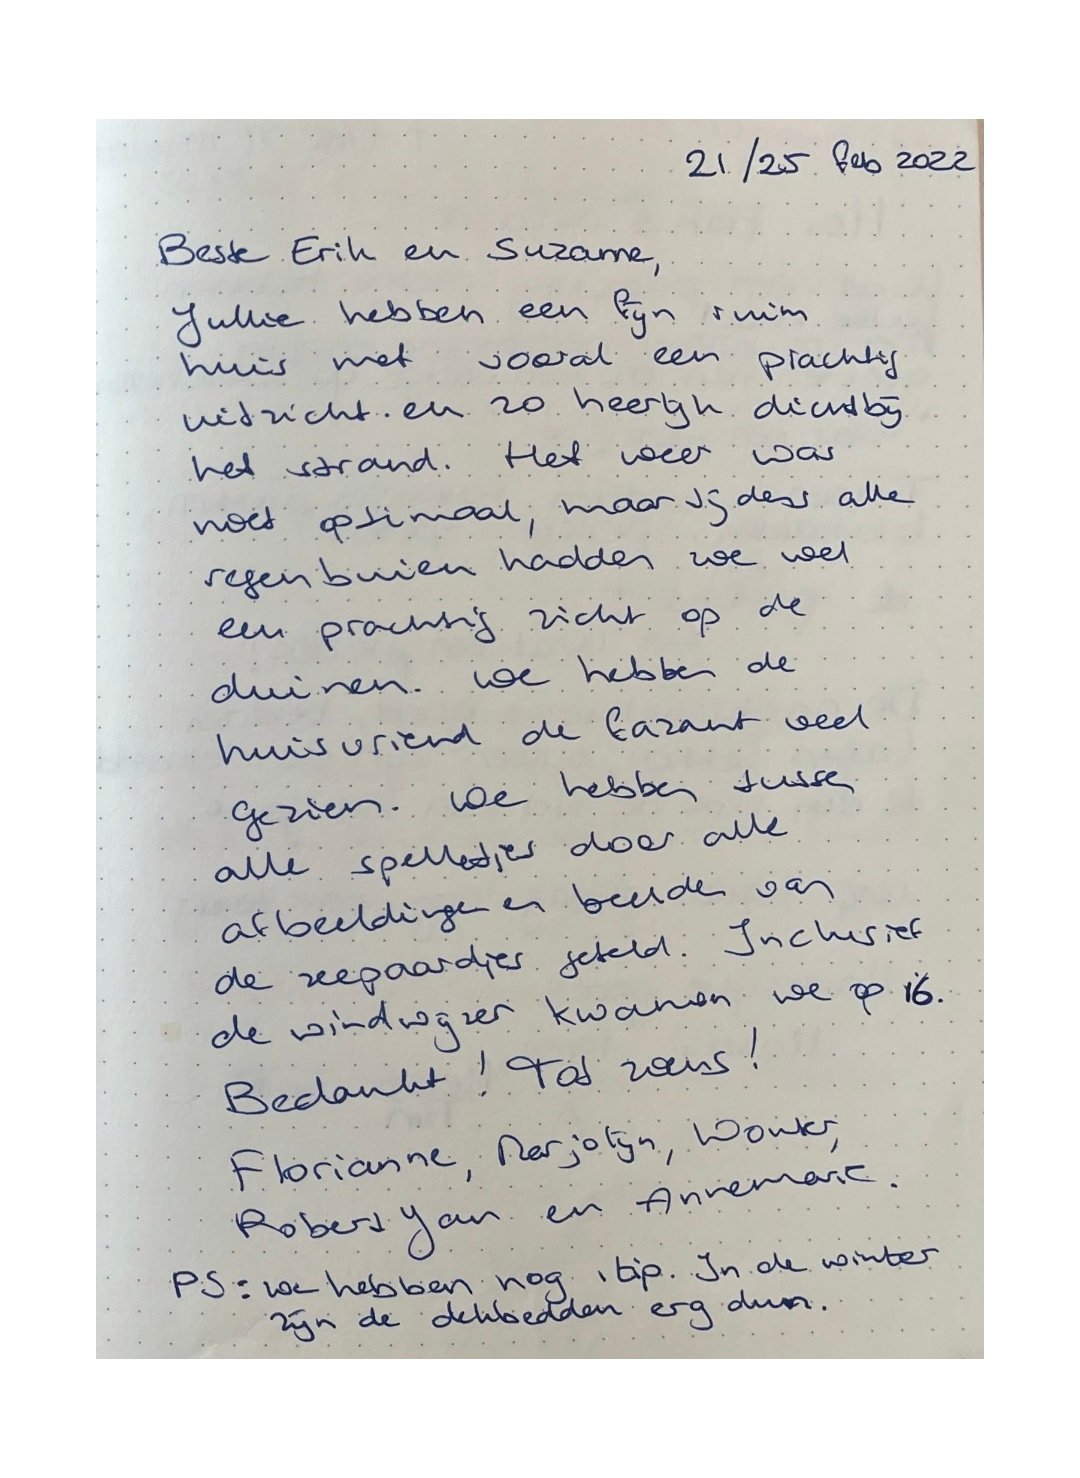 21/25 feb 2022
Beste Erik en Suzanne,
Jullie hebben een fijn ruim
huis met vooral een prachtig
uitzicht en zo heerlijk dichtbij
het strand. Het weer was
niet optimaal, maar tijdens alle
regenbuien hadden we wel
een prachtig zicht op de
duinen. We hebben de
huisvriend de fazant veel
gezien. We hebben tussen
alle spelletjes door alle
afbeeldingen en beelden van
de zeepaardjes geteld. Inclusief
de windwijzer kwamen we op 16.
Bedankt! Tot ziens!
Florianne, Marjolijn, Wouter,
Robert Jan en Annemarie.
PS: we hebben nog 1 tip. In de winter
zijn de dekbedden erg dun.